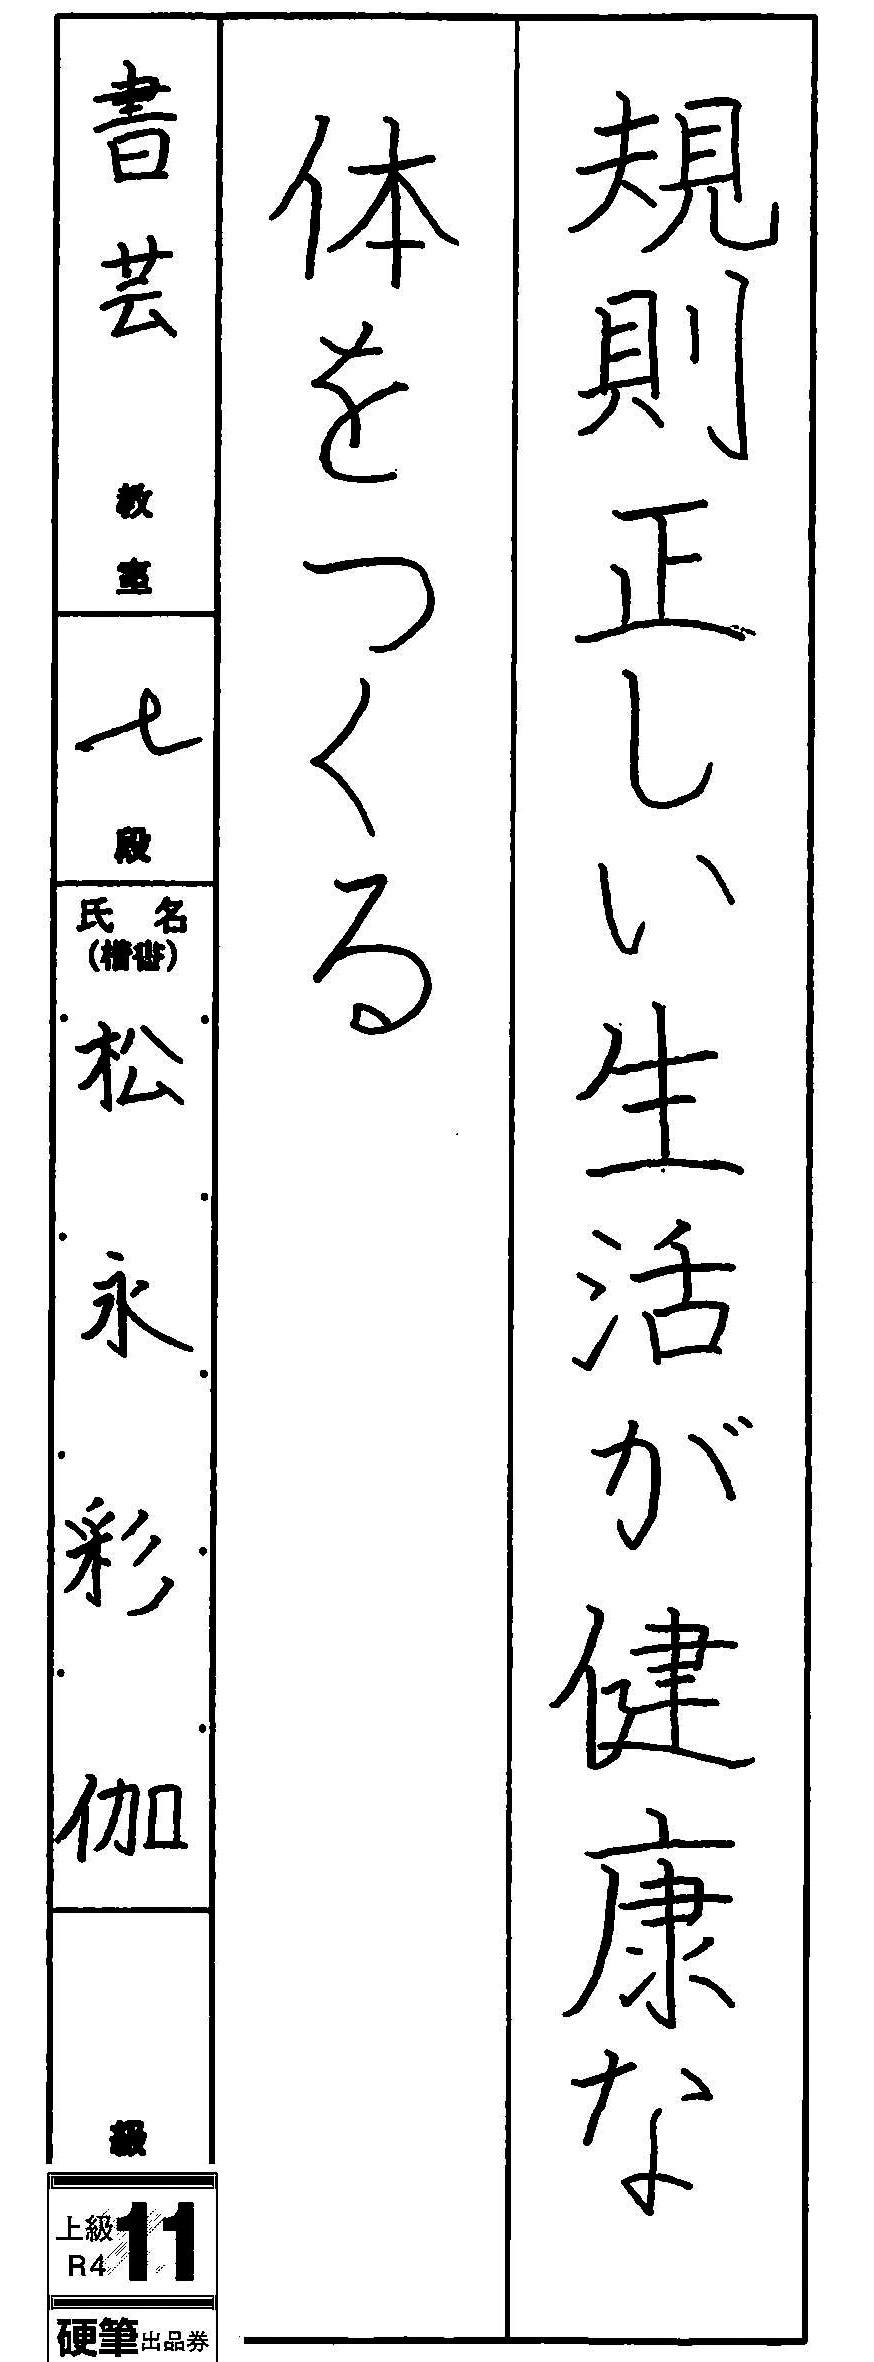 規則正しい生活が健康な
体をつくる
書芸教室
七段
氏名
(楷書)
松永彩伽
級
上級
R4
11
硬筆出品券